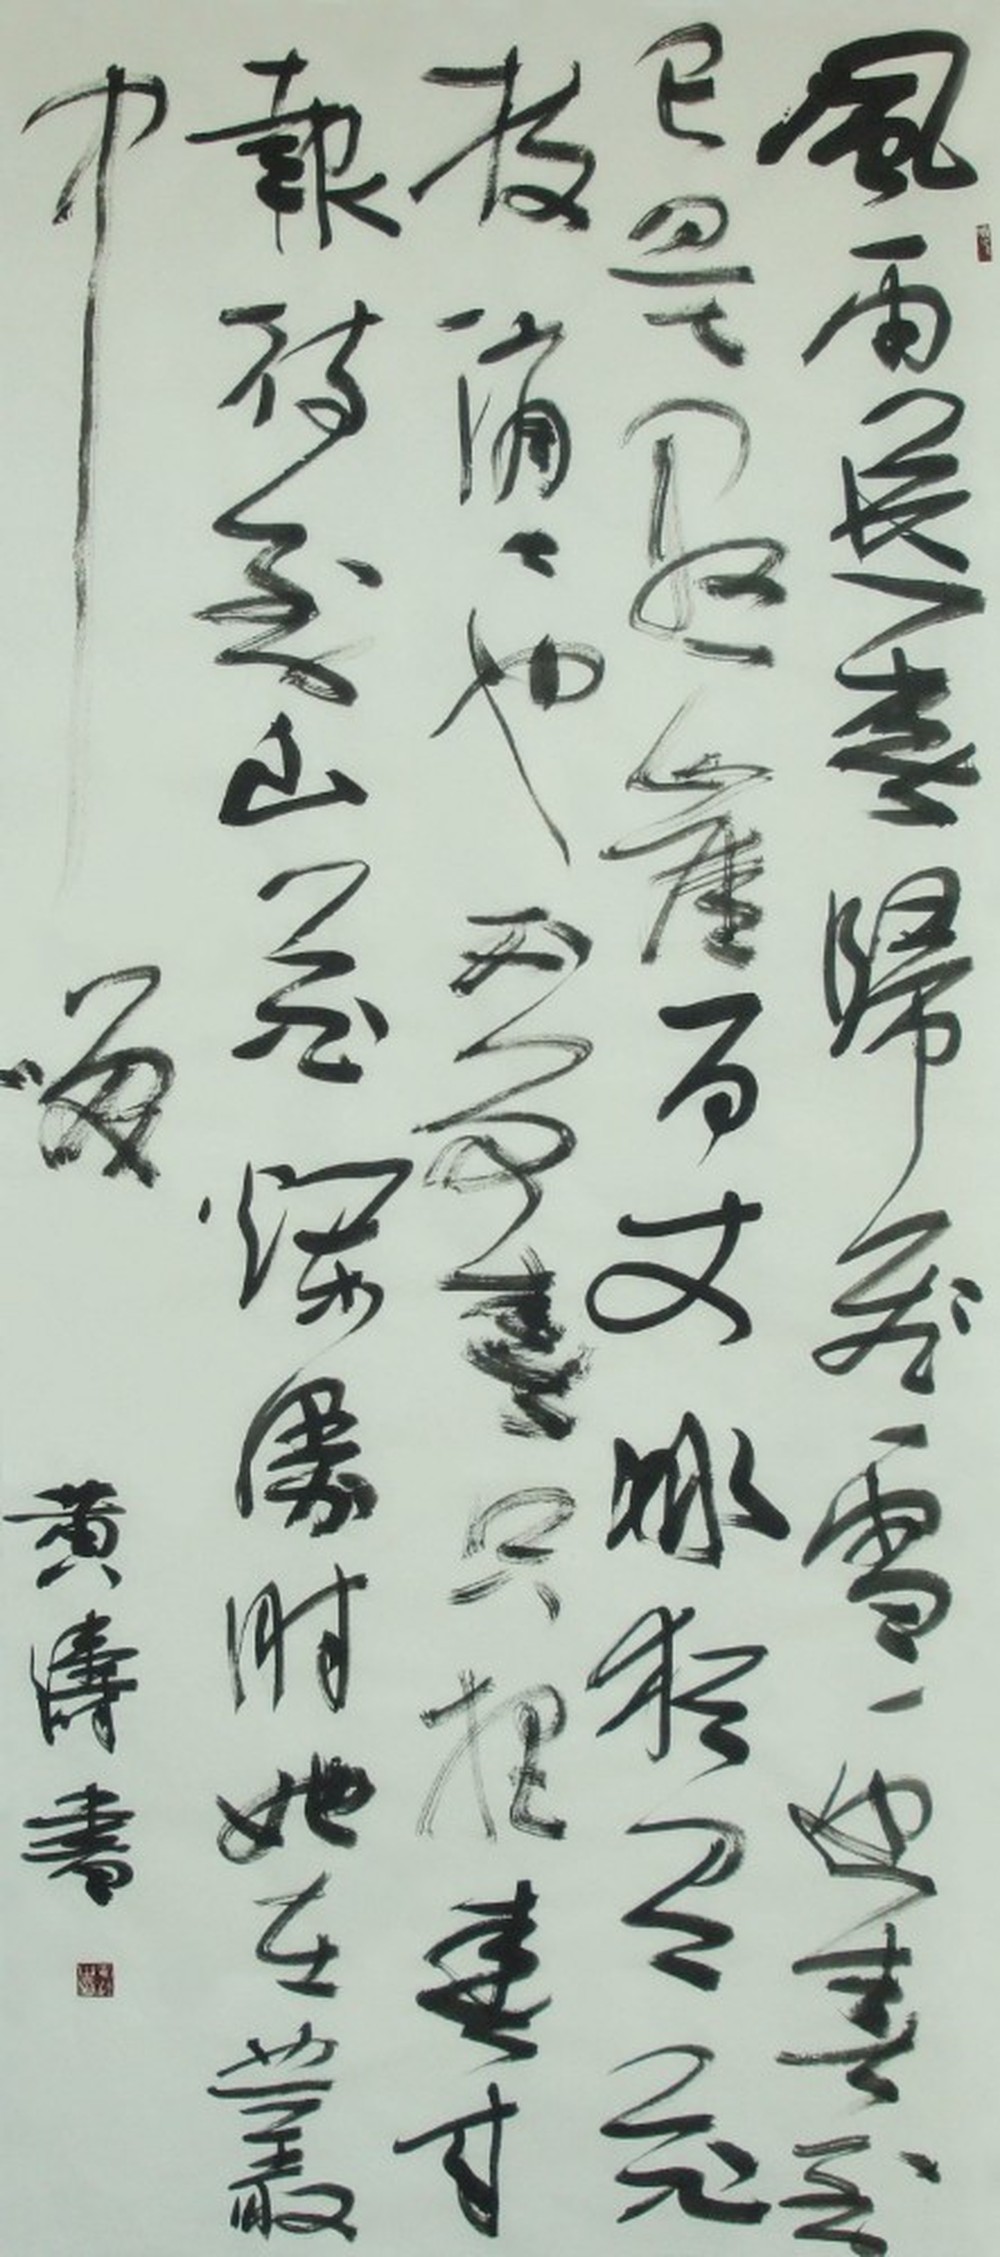 風雨送春歸飛雪迎春到
已是懸崖百丈冰猶有花
枝俏々也不爭春只把春來
報待到山花爛漫時她在叢
中笑
黄濤書